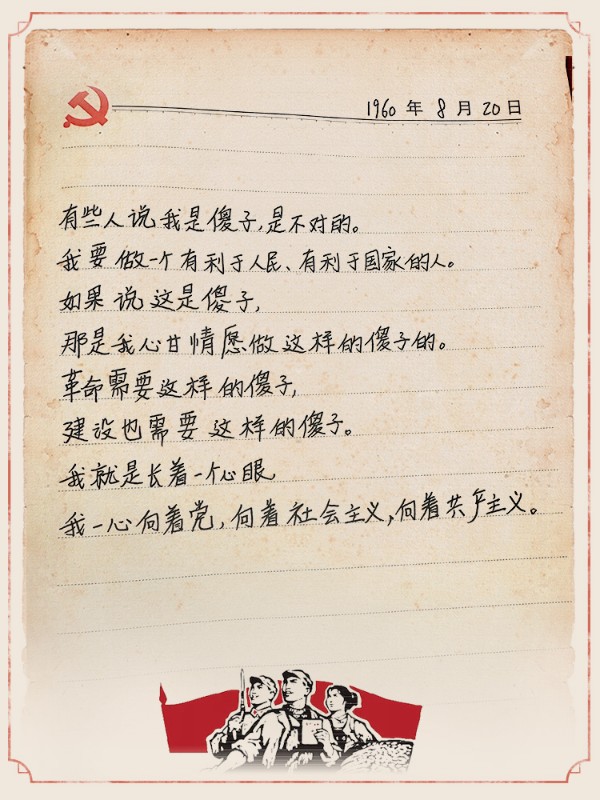 1960 年 8 月 20 日
有些人说我是傻子,是不对的。
我要做一个有利于人民、有利于国家的人。
如果说这是傻子,
那是我心甘情愿做这样的傻子的。
革命需要这样的傻子,
建设也需要这样的傻子。
我就是长着一个心眼
我一心向着党,向着社会主义,向着共产主义。